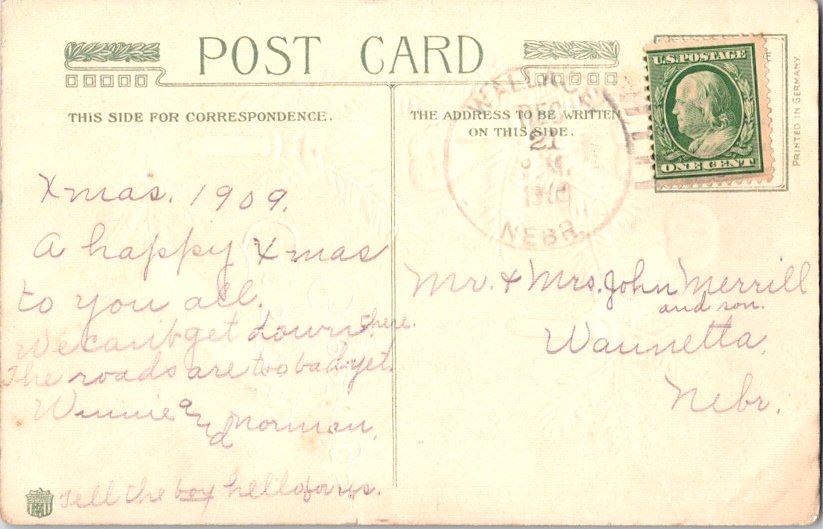 POST CARD
THIS SIDE FOR CORRESPONDENCE.
THE ADDRESS TO BE WRITTEN
ON THIS SIDE.
U.S. POSTAGE
ONE CENT
PRINTED IN GERMANY.
DEC
21
M.
NEBR.
Xmas. 1909.
A happy Xmas
to you all.
We can't get down there.
The roads are too bad yet.
Winnie and Norman.
Tell the boy hello for us.
Mr. & Mrs. John Merrill
and son.
Waunetta,
Nebr.